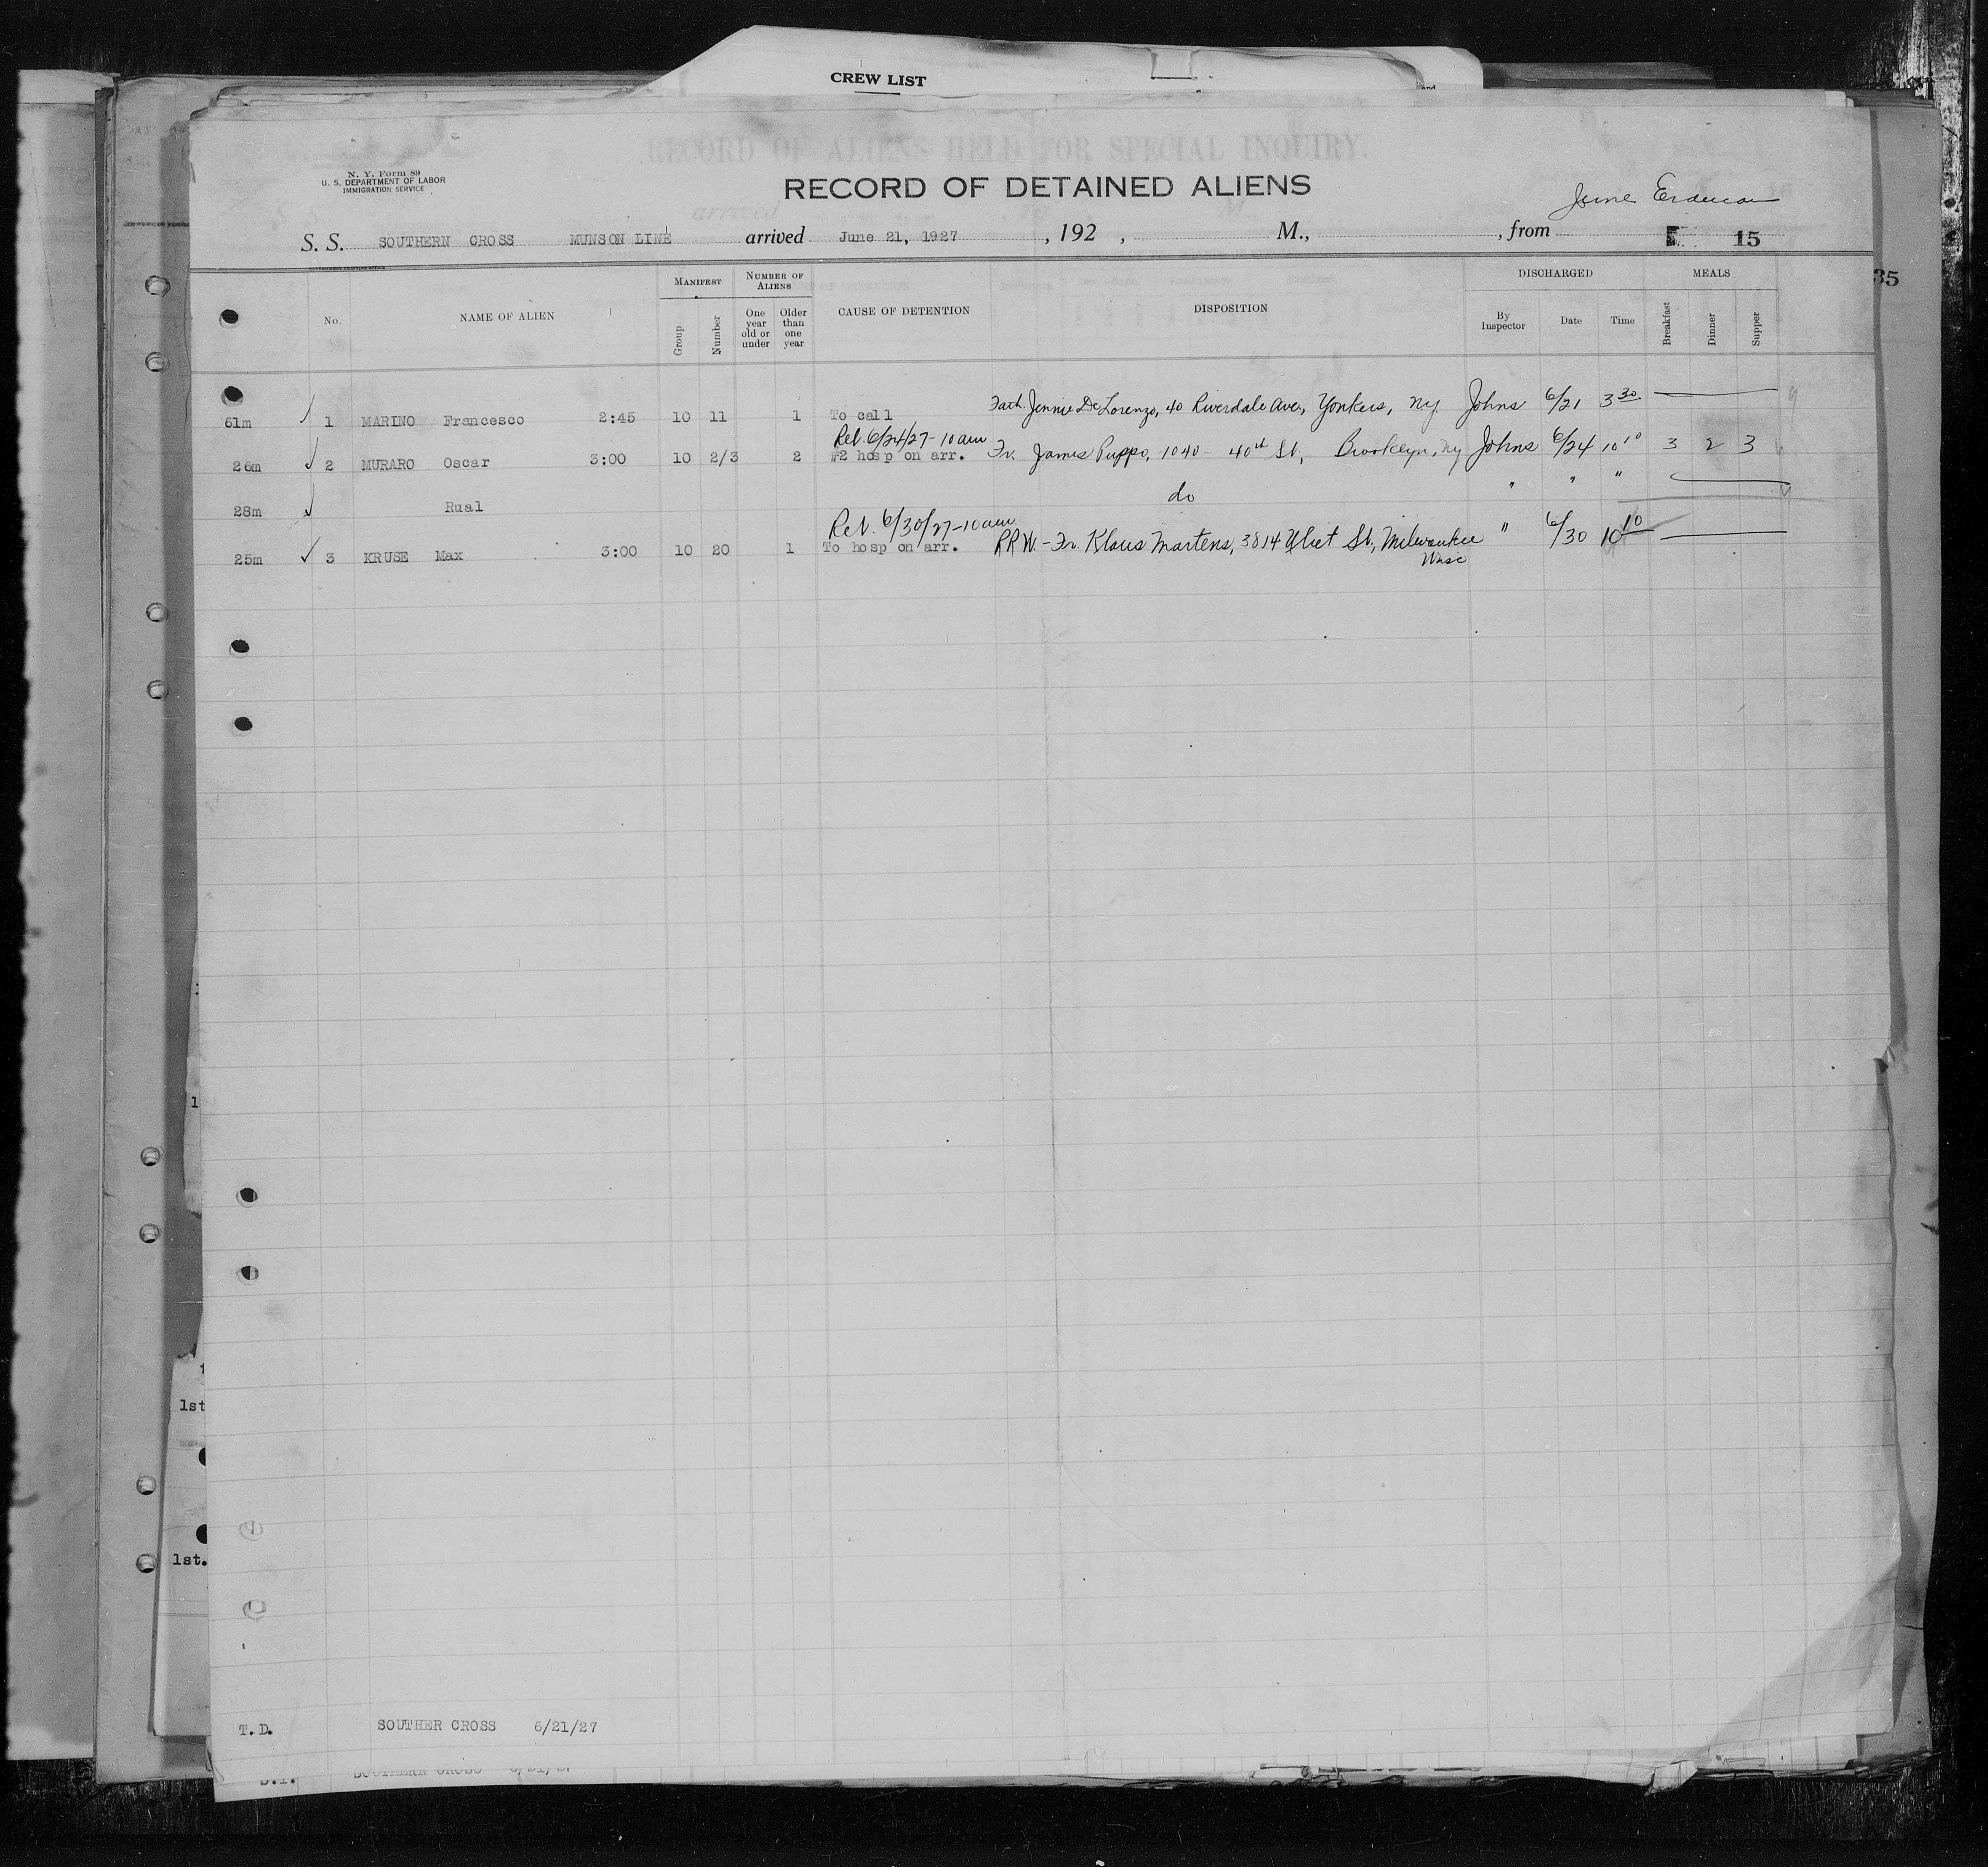 CREW LIST
RECORD OF ALIENS HELD FOR SPECIAL INQUIRY.
N. Y. Form 89
U. S. DEPARTMENT OF LABOR
IMMIGRATION SERVICE
RECORD OF DETAINED ALIENS
S. S. SOUTHERN CROSS MUNSON LINE arrived June 21, 1927 , 192 , M., , from 15
35
No. NAME OF ALIEN MANIFEST Group Number NUMBER OF ALIENS One year old or under Older than one year CAUSE OF DETENTION DISPOSITION DISCHARGED By Inspector Date Time MEALS Breakfast Dinner Supper
61m 1 MARINO Francesco 2:45 10 11 1 To call Jennie De Lorenzo, 40 Riverdale Ave, Yonkers, NY. Johns 6/21 3 30
Rel. 6/24/27-10 am
26m 2 MURARO Oscar 3:00 10 2/3 2 #2 hosp on arr. Fr. James Puppo, 1040 - 40th St, Brooklyn, NY Johns 6/24 10 10 3 2 3
28m Rual do " " "
Rel. 6/30/27-10 am
25m 3 KRUSE Max 3:00 10 20 1 To hosp on arr. RRW.- Fr. Klaus Martens, 3814 Vliet St, Milwaukee " 6/30 10 10
Wisc
1st
1st.
T.D. SOUTHER CROSS 6/21/27